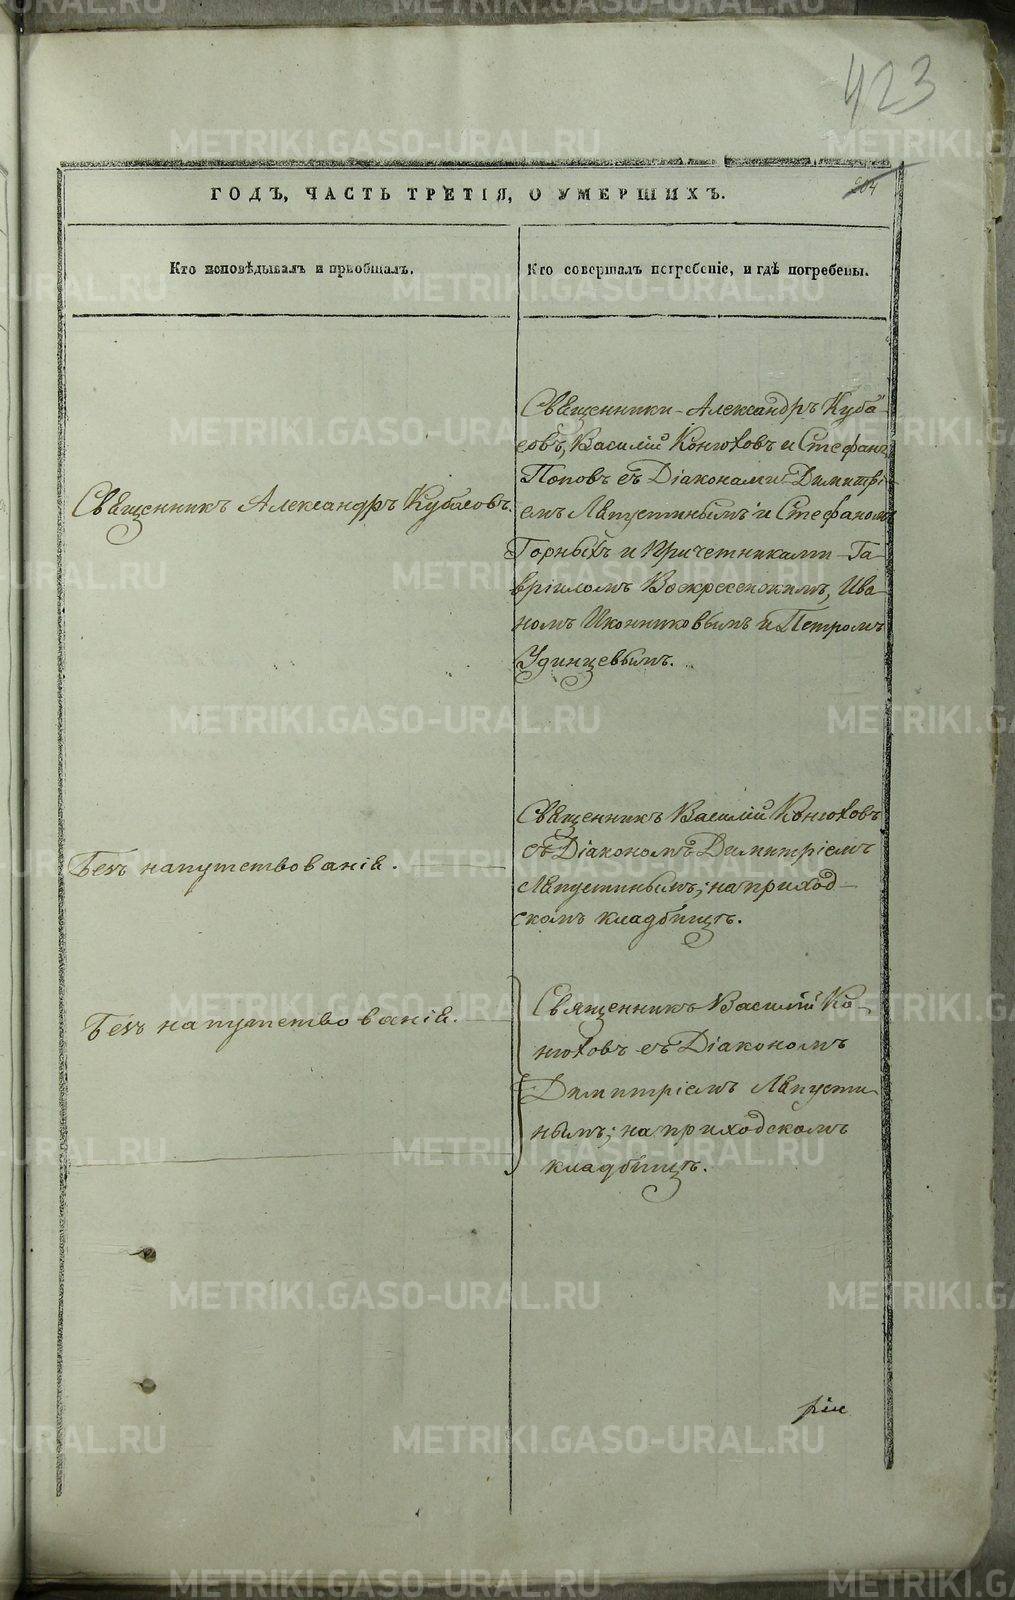 423
504
ГОДЪ, ЧАСТЬ ТРЕТІЯ, О УМЕРШИХЪ.
Кто исповѣдывалъ и пріобщалъ.
Кто совершалъ погребеніе, и гдѣ погребены.
Священникъ Александръ Кубасовъ.
Священники Александръ Куба-
совъ, Василій Конюховъ и Стефанъ
Поповъ съ Діаконами Димитрі-
емъ Ляпустинымъ и Стефаномъ
Горныхъ и Причетниками Га-
вріиломъ Воскресенскимъ, Ива-
номъ Иконниковымъ и Петромъ
Удинцевымъ.
Безъ напутствованія.
Священникъ Василій Конюховъ
съ Діакономъ Димитріемъ
Ляпустинымъ; на приход-
скомъ кладбищѣ.
Безъ напутствованія.
Священникъ Василій Ко-
нюховъ съ Діакономъ
Димитріемъ Ляпусти-
нымъ; на приходскомъ
кладбищѣ.
METRIKI.GASO-URAL.RU